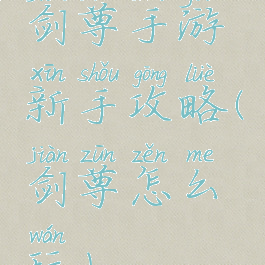 剑尊手游
xīn shǒu gōng lüè
新手攻略(
jiàn zūn zěn me
剑尊怎么
wán